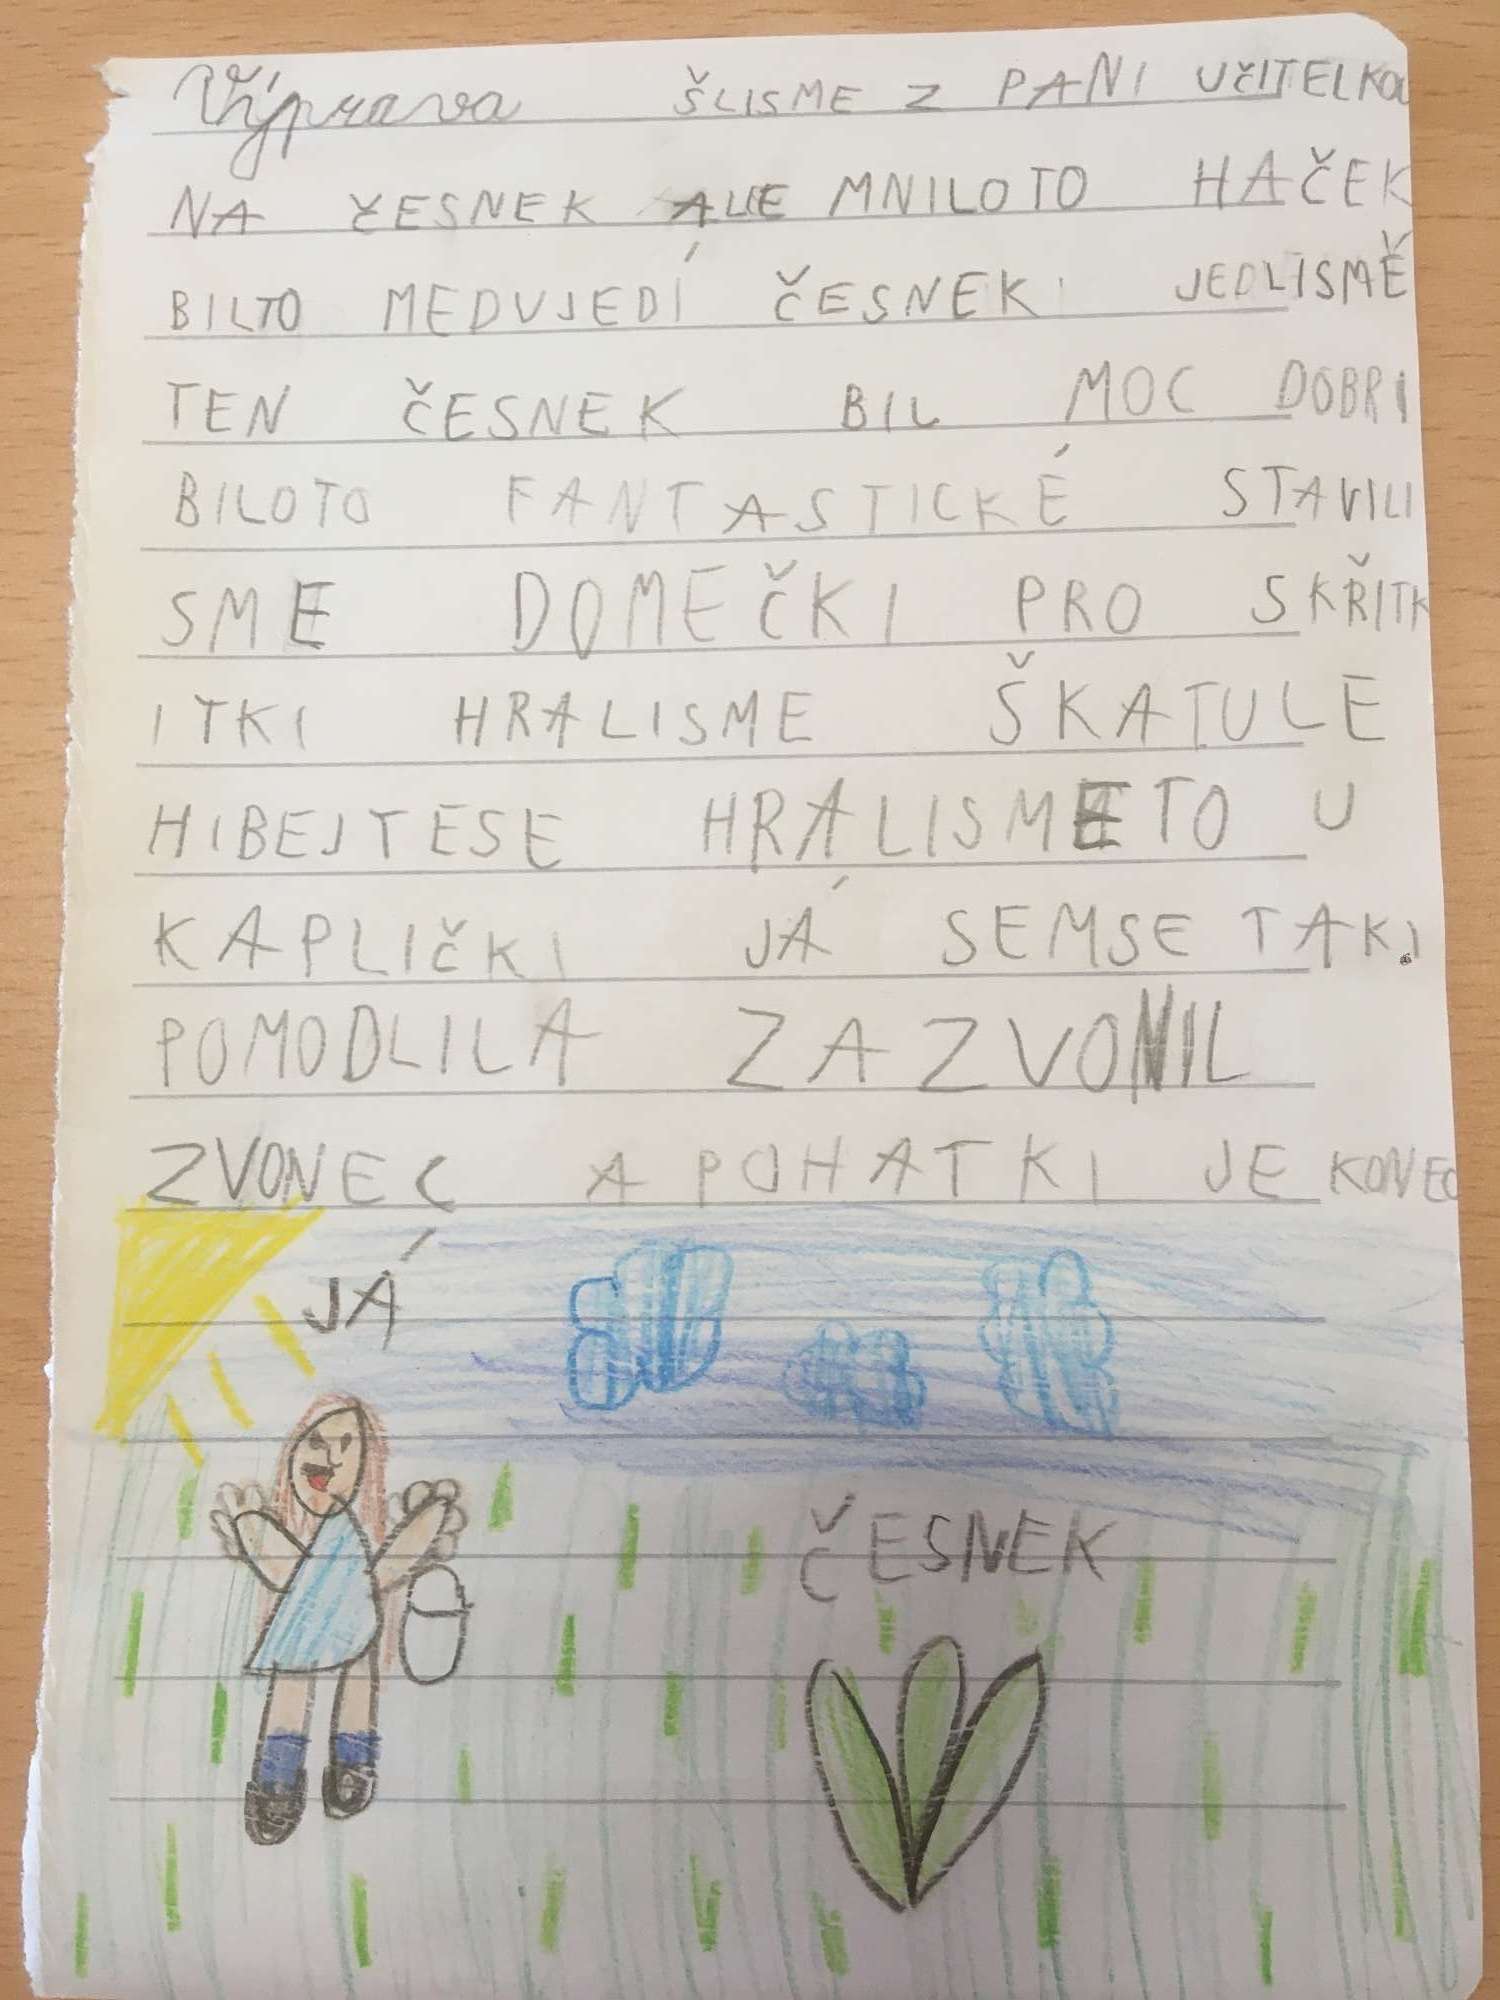 Výprava ŠLISME Z PANI UČITELKOU
NA ČESNEK ALE MNILOTO HAČEK
BILTO MEDVJEDÍ ČESNEK JEDLISMĚ
TEN ČESNEK BIL MOC DOBRI
BILOTO FANTASTICKÉ STAVILI
SME DOMEČKI PRO SKŘITK
ITKI HRALISME ŠKATULE
HIBEJTESE HRALISMETO U
KAPLIČKI JÁ SEMSE TAKI
POMODLILA ZAZVONIL
ZVONEC A POHATKI JE KONEC
JÁ
ČESNEK